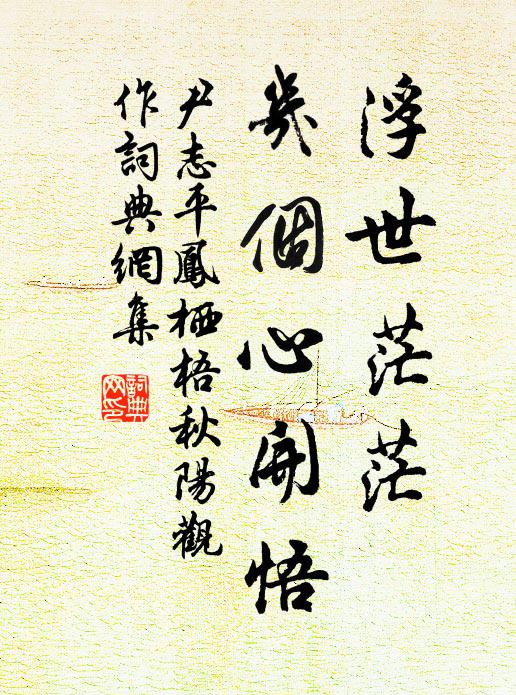 浮世茫茫
幾個心開悟
尹志平鳳栖梧秋陽觀
作詞典網集
詞典網印